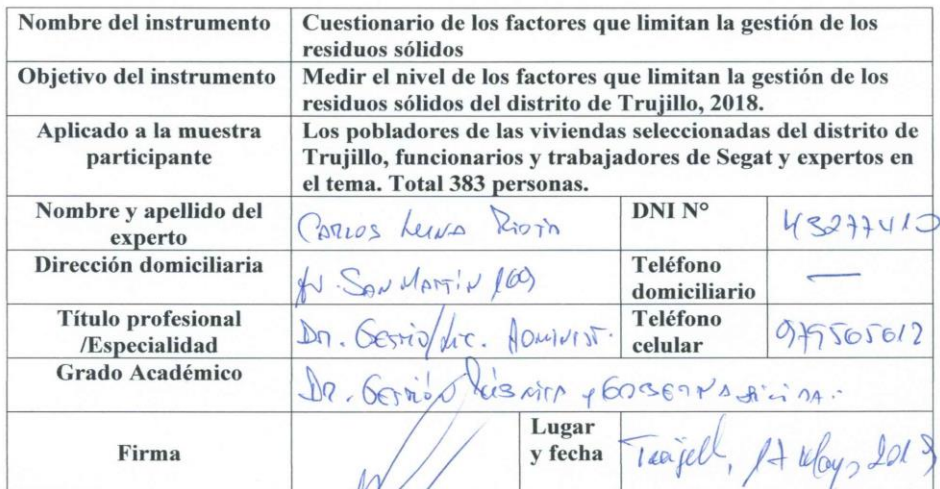 Nombre del instrumento
Cuestionario de los factores que limitan la gestión de los
residuos sólidos
Objetivo del instrumento
Medir el nivel de los factores que limitan la gestión de los
residuos sólidos del distrito de Trujillo, 2018.
Aplicado a la muestra
participante
Los pobladores de las viviendas seleccionadas del distrito de
Trujillo, funcionarios y trabajadores de Segat y expertos en
el tema. Total 383 personas.
Nombre y apellido del
experto
Carlos
DNI N°
Dirección domiciliaria
Av. San Martín
Teléfono
domiciliario
—
Título profesional
/Especialidad
Dr. Gestió/Lic. Administ.
Teléfono
celular
979565612
Grado Académico
Dr. Gestión Pública y Gobernabilidad.
Firma
Lugar
y fecha
Trujill, 17 Mayo, 201